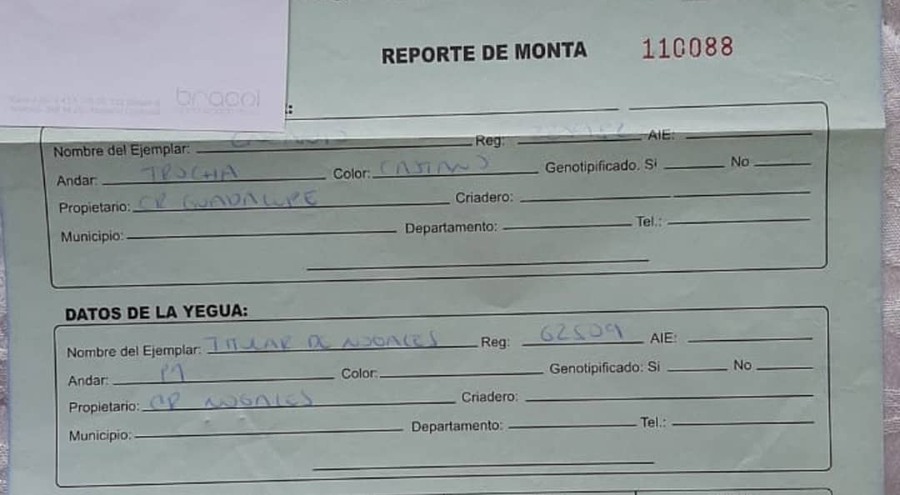 REPORTE DE MONTA 110088
bracol
:
Nombre del Ejemplar: Reg: AIE:
Andar: TROCHA Color: CASTAÑO Genotipificado. Si No
Propietario: CR GUADALUPE Criadero:
Municipio: Departamento: Tel.:
DATOS DE LA YEGUA:
Nombre del Ejemplar: TITULAR DE NOGALES Reg: 62509 AIE:
Andar: P1 Color: Genotipificado: Si No
Propietario: CR NOGALES Criadero:
Municipio: Departamento: Tel.: